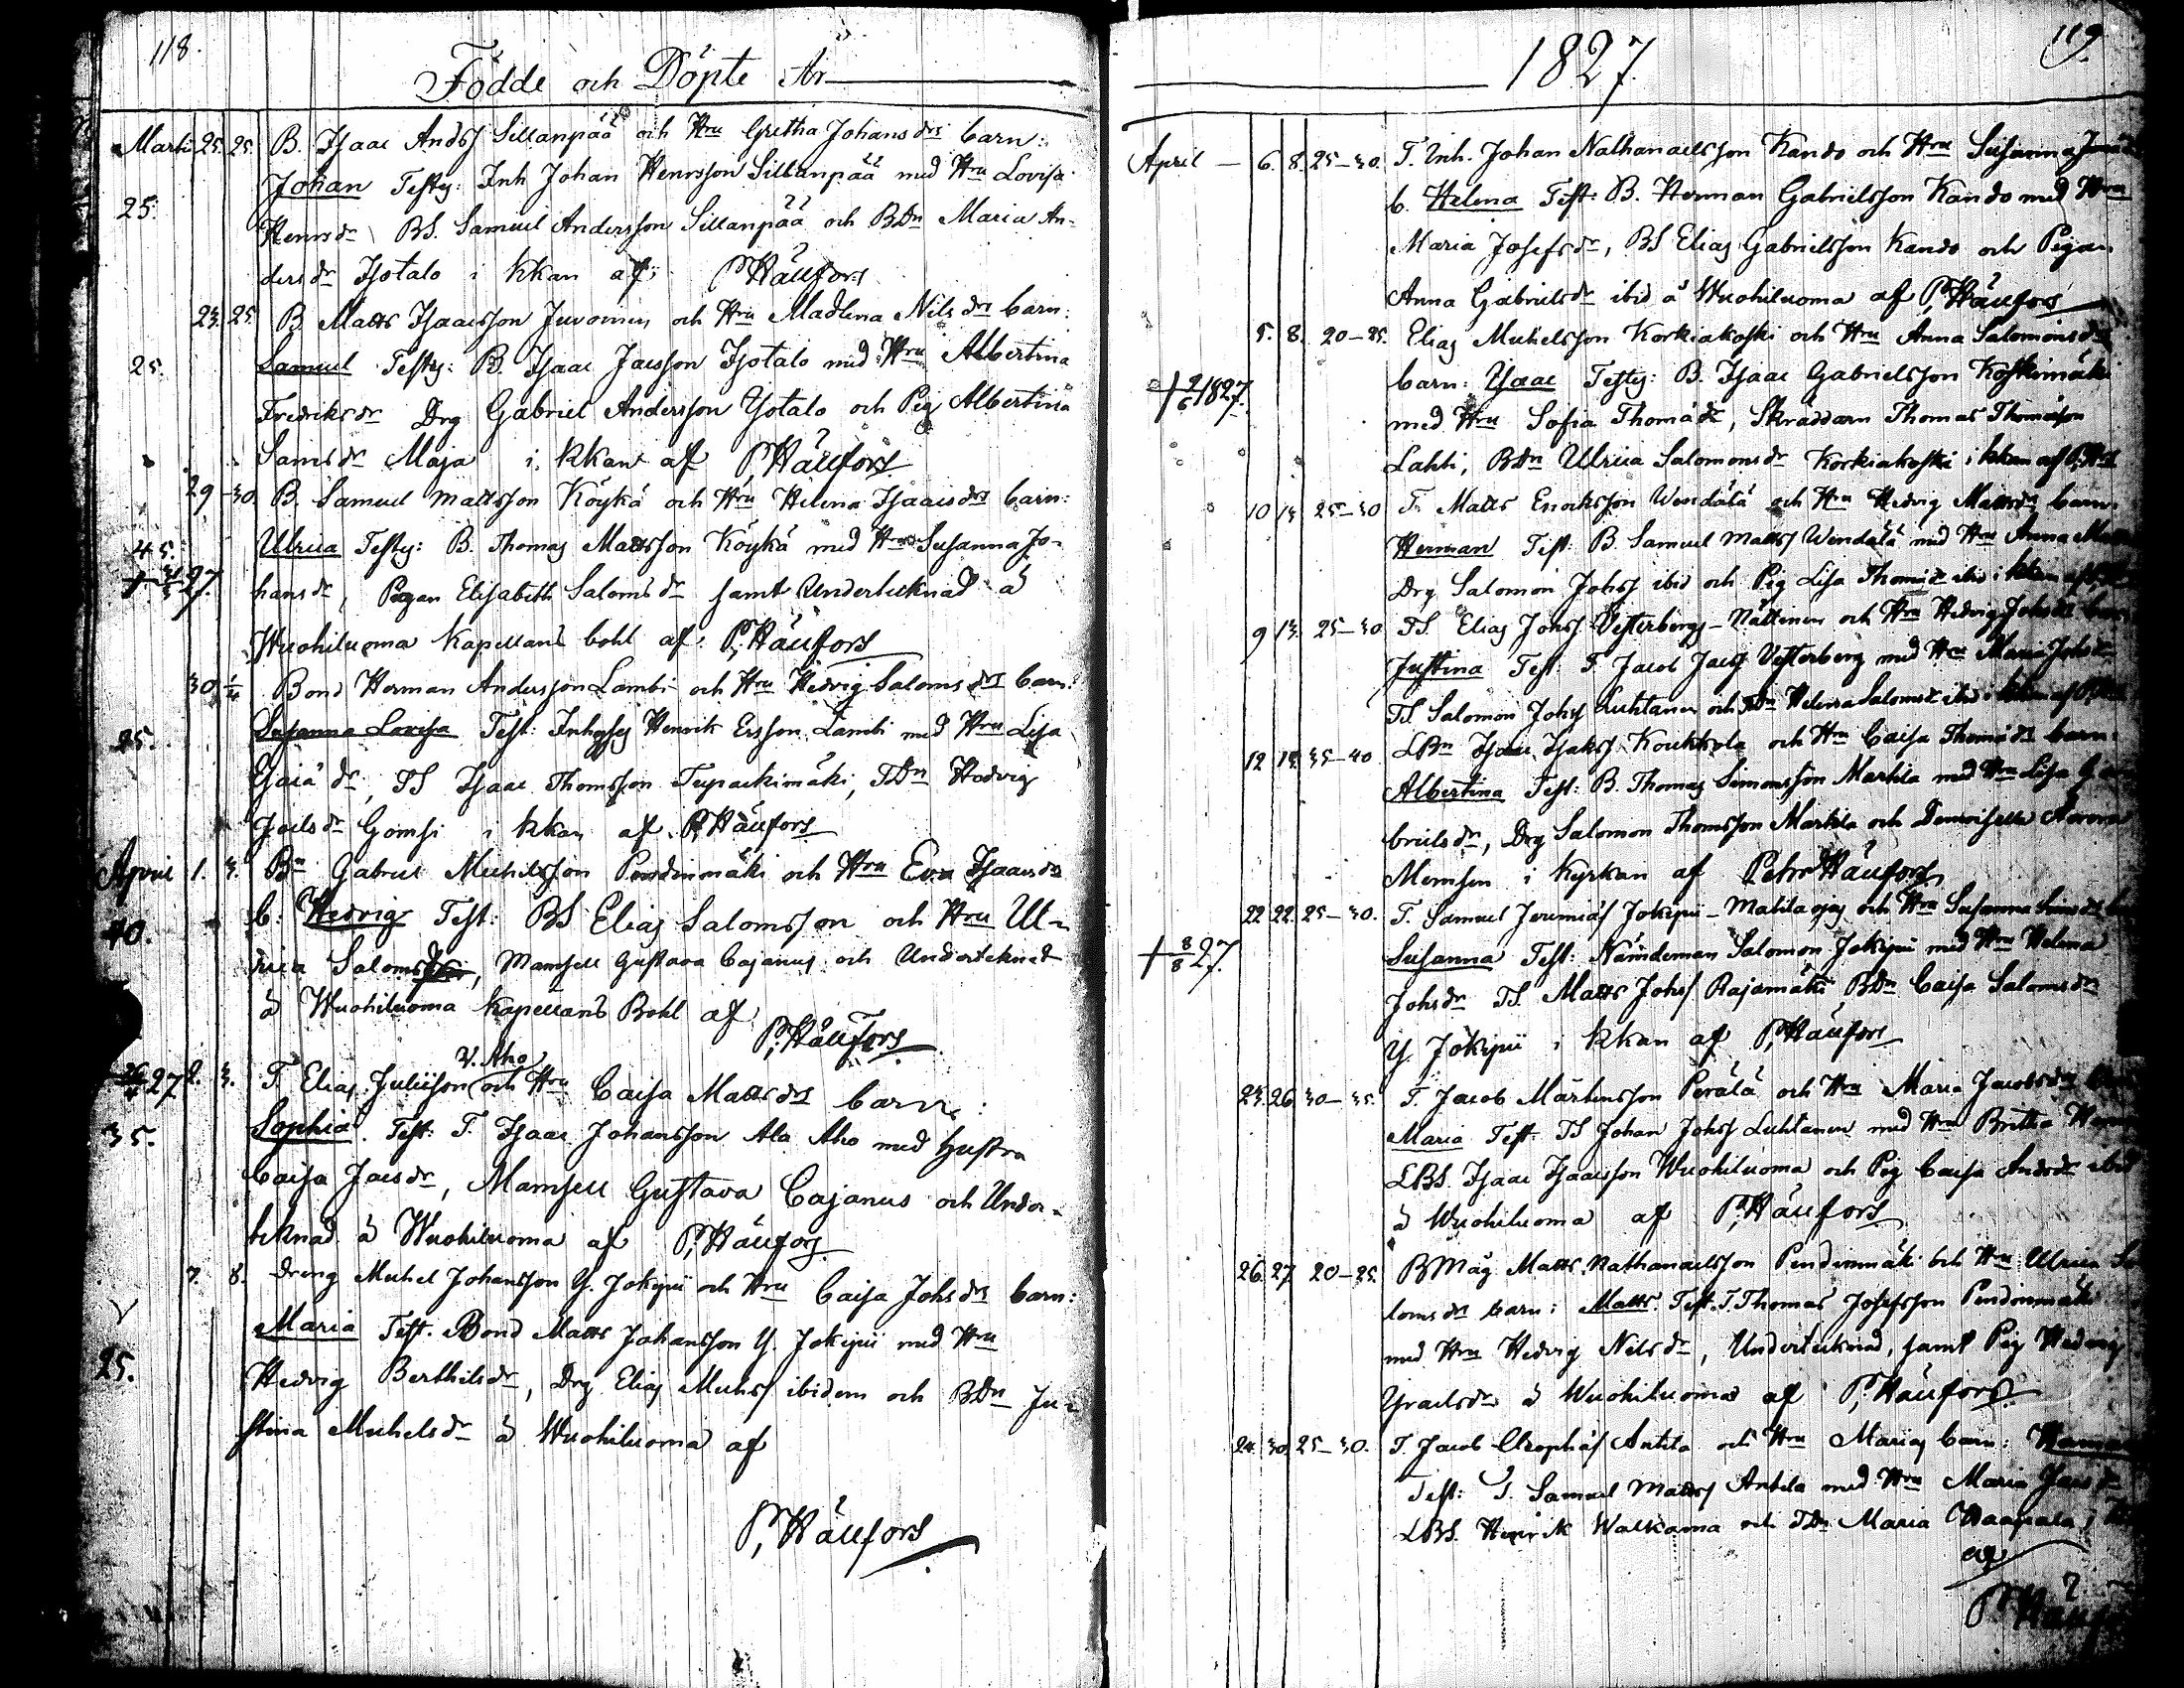 118.
Födde och Döpte År
Martii 25. 25. B. Isaac Andsf Sillanpää och Hru Gretha Johansdrs barn:
Johan Testes: Inh Johan Henrsson Sillanpää med Hru Lovisa
25. Henrsdr BS. Samuel Andersson Sillanpää och BDn Maria An-
dersdr Isotalo i kkan af P. Hällfors
23. 25. B. Matts Isaacsson Juvonen och Hru Madlena Nilsdrs barn:
25. Samuel Testes: B. Isaac Jacsson Isotalo med Hru Albertina
Fredriksdr Drg Gabriel Andersson Ysotalo och Pig Albertina
Samsdr Maja i kkan af P Hällfors
29 - 30. B. Samuel Mattsson Köykä och Hru Helena Isaacsdrs barn:
45. Ulrica Testes: B. Thomas Mattsson Köykä med Hru Susanna Jo-
27. hansdr, Pigan Elisabeth Salomsdr samt Undertecknad å
Wuohiluoma Kapellans bohl af P. Hällfors
30. 1/4 Bond Herman Andersson Lambi och Hru Hedvig Salomsdrs barn:
25. Susanna Lovisa Test: Inhyses Henrik Ersson Lambi med Hru Lisa
Esaiädr, TS Isaac Thomsson Tupackimäki, TDn Hedvig
Joelsdr Gomsi i kkan af P. Hällfors
April 1. 3. Bn Gabriel Michelsson Pendinmäki och Hru Eva Isaacsdrs
40. b: Hedvig Test: BS Elias Salomsson och Hru Ul-
rica Salomsdr, Mamsell Gustava Cajanus och Undertecknad
å Wuohiluoma Kapellans Bohl af
P. Hällfors
Y. Aho
27 2. 3. T Elias Juliisson och Hru Caisa Mattsdrs barn:
35. Sophia. Test: T. Isaac Johansson Ala Aho med hustru
Caisa Jacsdr, Mamsell Gustava Cajanus och Under-
tecknad å Wuohiluoma af P. Hällfors
7. 8. Dreng Michel Johansson Y. Jokipii och Hru Caisa Johsdrs barn:
Maria Test. Bond Matts Johansson Y. Jokipii med Hru
25. Hedvig Berthilsdr, Drg Elias Michsf ibidem och BDn Ju-
stina Michelsdr å Wuohiluoma af
P. Hällfors
119.
1827.
April - 6. 8. 25-30. T. Inh. Johan Nathanaelsson Kando och Hru Susanna
b. Helena Test: B. Herman Gabrielsson Kando med Hru
Maria Josefsdr, BS Elias Gabrielsson Kando och Pigan
Anna Gabrielsdr ibid å Wuohiluoma af P. Hällfors
5. 8. 20-25. Elias Michelsson Korkiakoski och Hru Anna Salomonsdrs
† 2/6 1827. barn: Isaac Testes: B. Isaac Gabrielsson Koskimäki
med Hru Sofia Thomädr, Skraddarn Thomas Thomasson
Lahti, BDn Ulrica Salomonsdr Korkiakoski i kkan af
10 13 25-30 T. Matts Enocksson Wendälä och Hru Hedvig Mattsdrs barn
Herman Test: B. Samuel Mattsf Wendälä med Hru Anna
Drg Salomon Johsf ibid och Pig Lisa Thomädr ibid i kkan af
9 13. 25-30 TS. Elias Johsf Vesterberg-Nättinen och Hru Hedvig Johsdrs
Justina Test: T. Jacob Jacsf Vesterberg med Hru Maria Johsdr
TS. Salomon Johsf Luhtanen och TDn Helena Salomsdr ibid i kkan af
12 19. 35-40 LBn Isaac Isaksf Koukkola och Hru Caisa Thomädrs barn:
Albertina Test: B. Thomas Simonsson Markila med Hru Lisa Ga-
brielsdr, Drg Salomon Thomsson Markila och Demoiselle Aurora
Memsen i kyrkan af Petr Hällfors
22 22. 25-30. T. Samuel Jeremiäs Jokipii-Matilaojas och Hru Susanna
† 8/8 27. Susanna Test: Nämndeman Salomon Jokipii med Hru Helena
Johsdr TS. Matts Johsf Rajamäki BDn Caisa Salomsdr
Y. Jokipii i kkan af P. Hällfors
23. 26. 30-35. T. Jacob Mårtensson Perälä och Hru Maria Jacobsdrs
Maria Test: TS Johan Johsf Luhtanen med Hru Britta
LBS. Isaac Isaacsson Wuohiluoma och Pig Caisa Andsdr ibid
å Wuohiluoma af P. Hällfors
26. 27 20-25. BMåg Matts Nathanaelsson Pendinmäki och Hru Ulrica Sa-
lomsdrs barn: Matts. Test. T. Thomas Josefsson Pendinmäki
med Hru Hedvig Nilsdr, Undertecknad, samt Pig Hedvig
Ysraelsdr å Wuohiluoma af P. Hällfors
24. 30. 25-30. T. Jacob Cleophäs Antila och Hru Marias barn:
Test: T. Samuel Mattsf Antila med Hru Maria
LBS. Henrik Walkama och TDn Maria
af
P Häll